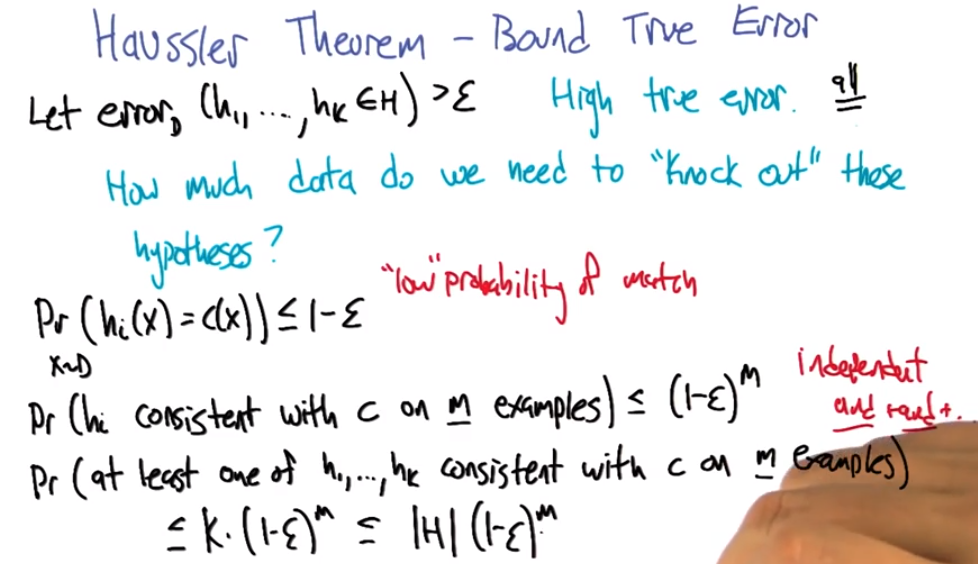 Haussler Theorem – Bound True Error
Let error_D (h₁, ..., h_K ∈ H) > ε High true error. all
How much data do we need to "knock out" these
hypotheses?
Pr (hᵢ(x) = c(x)) ≤ 1-ε "low" probability of match
x~D
Pr (hᵢ consistent with c on m examples) ≤ (1-ε)^m independent
and
Pr (at least one of h₁, ..., h_K consistent with c on m examples)
≤ K · (1-ε)^m ≤ |H| (1-ε)^m